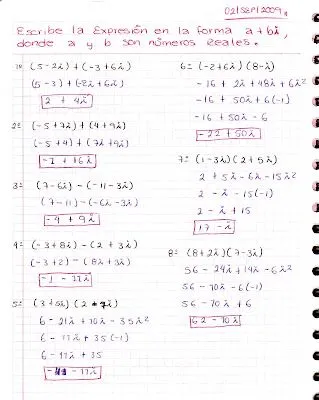 02/SEP/2009
Escribe la Expresión en la forma a+bi,
donde a y b son números Reales.
1= (5-2i)+(-3+6i)
(5-3)+(-2i+6i)
2 + 4i
2= (-5+7i)+(4+9i)
(-5+4)+(7i+9i)
-1 + 16i
3= (7-6i)-(-11-3i)
(7-11)-(-6i-3i)
-4 + 9i
4= (-3+8i)-(2+3i)
(-3+2)-(8i+3i)
-1 - 11i
5= (3+5i)(2-7i)
6 - 21i + 10i - 35i²
6 - 11i + 35(-1)
6 - 11i + 35
- 11i
6= (-2+6i)(8-i)
-16 + 2i + 48i + 6i²
-16 + 50i + 6(-1)
-16 + 50i - 6
-22 + 50i
7= (1-3i)(2+5i)
2 + 5i - 6i - 15i²
2 - i - 15(-1)
2 - i + 15
17 - i
8= (8+2i)(7-3i)
56 - 24i + 14i - 6i²
56 - 10i - 6(-1)
56 - 10i + 6
62 - 10i